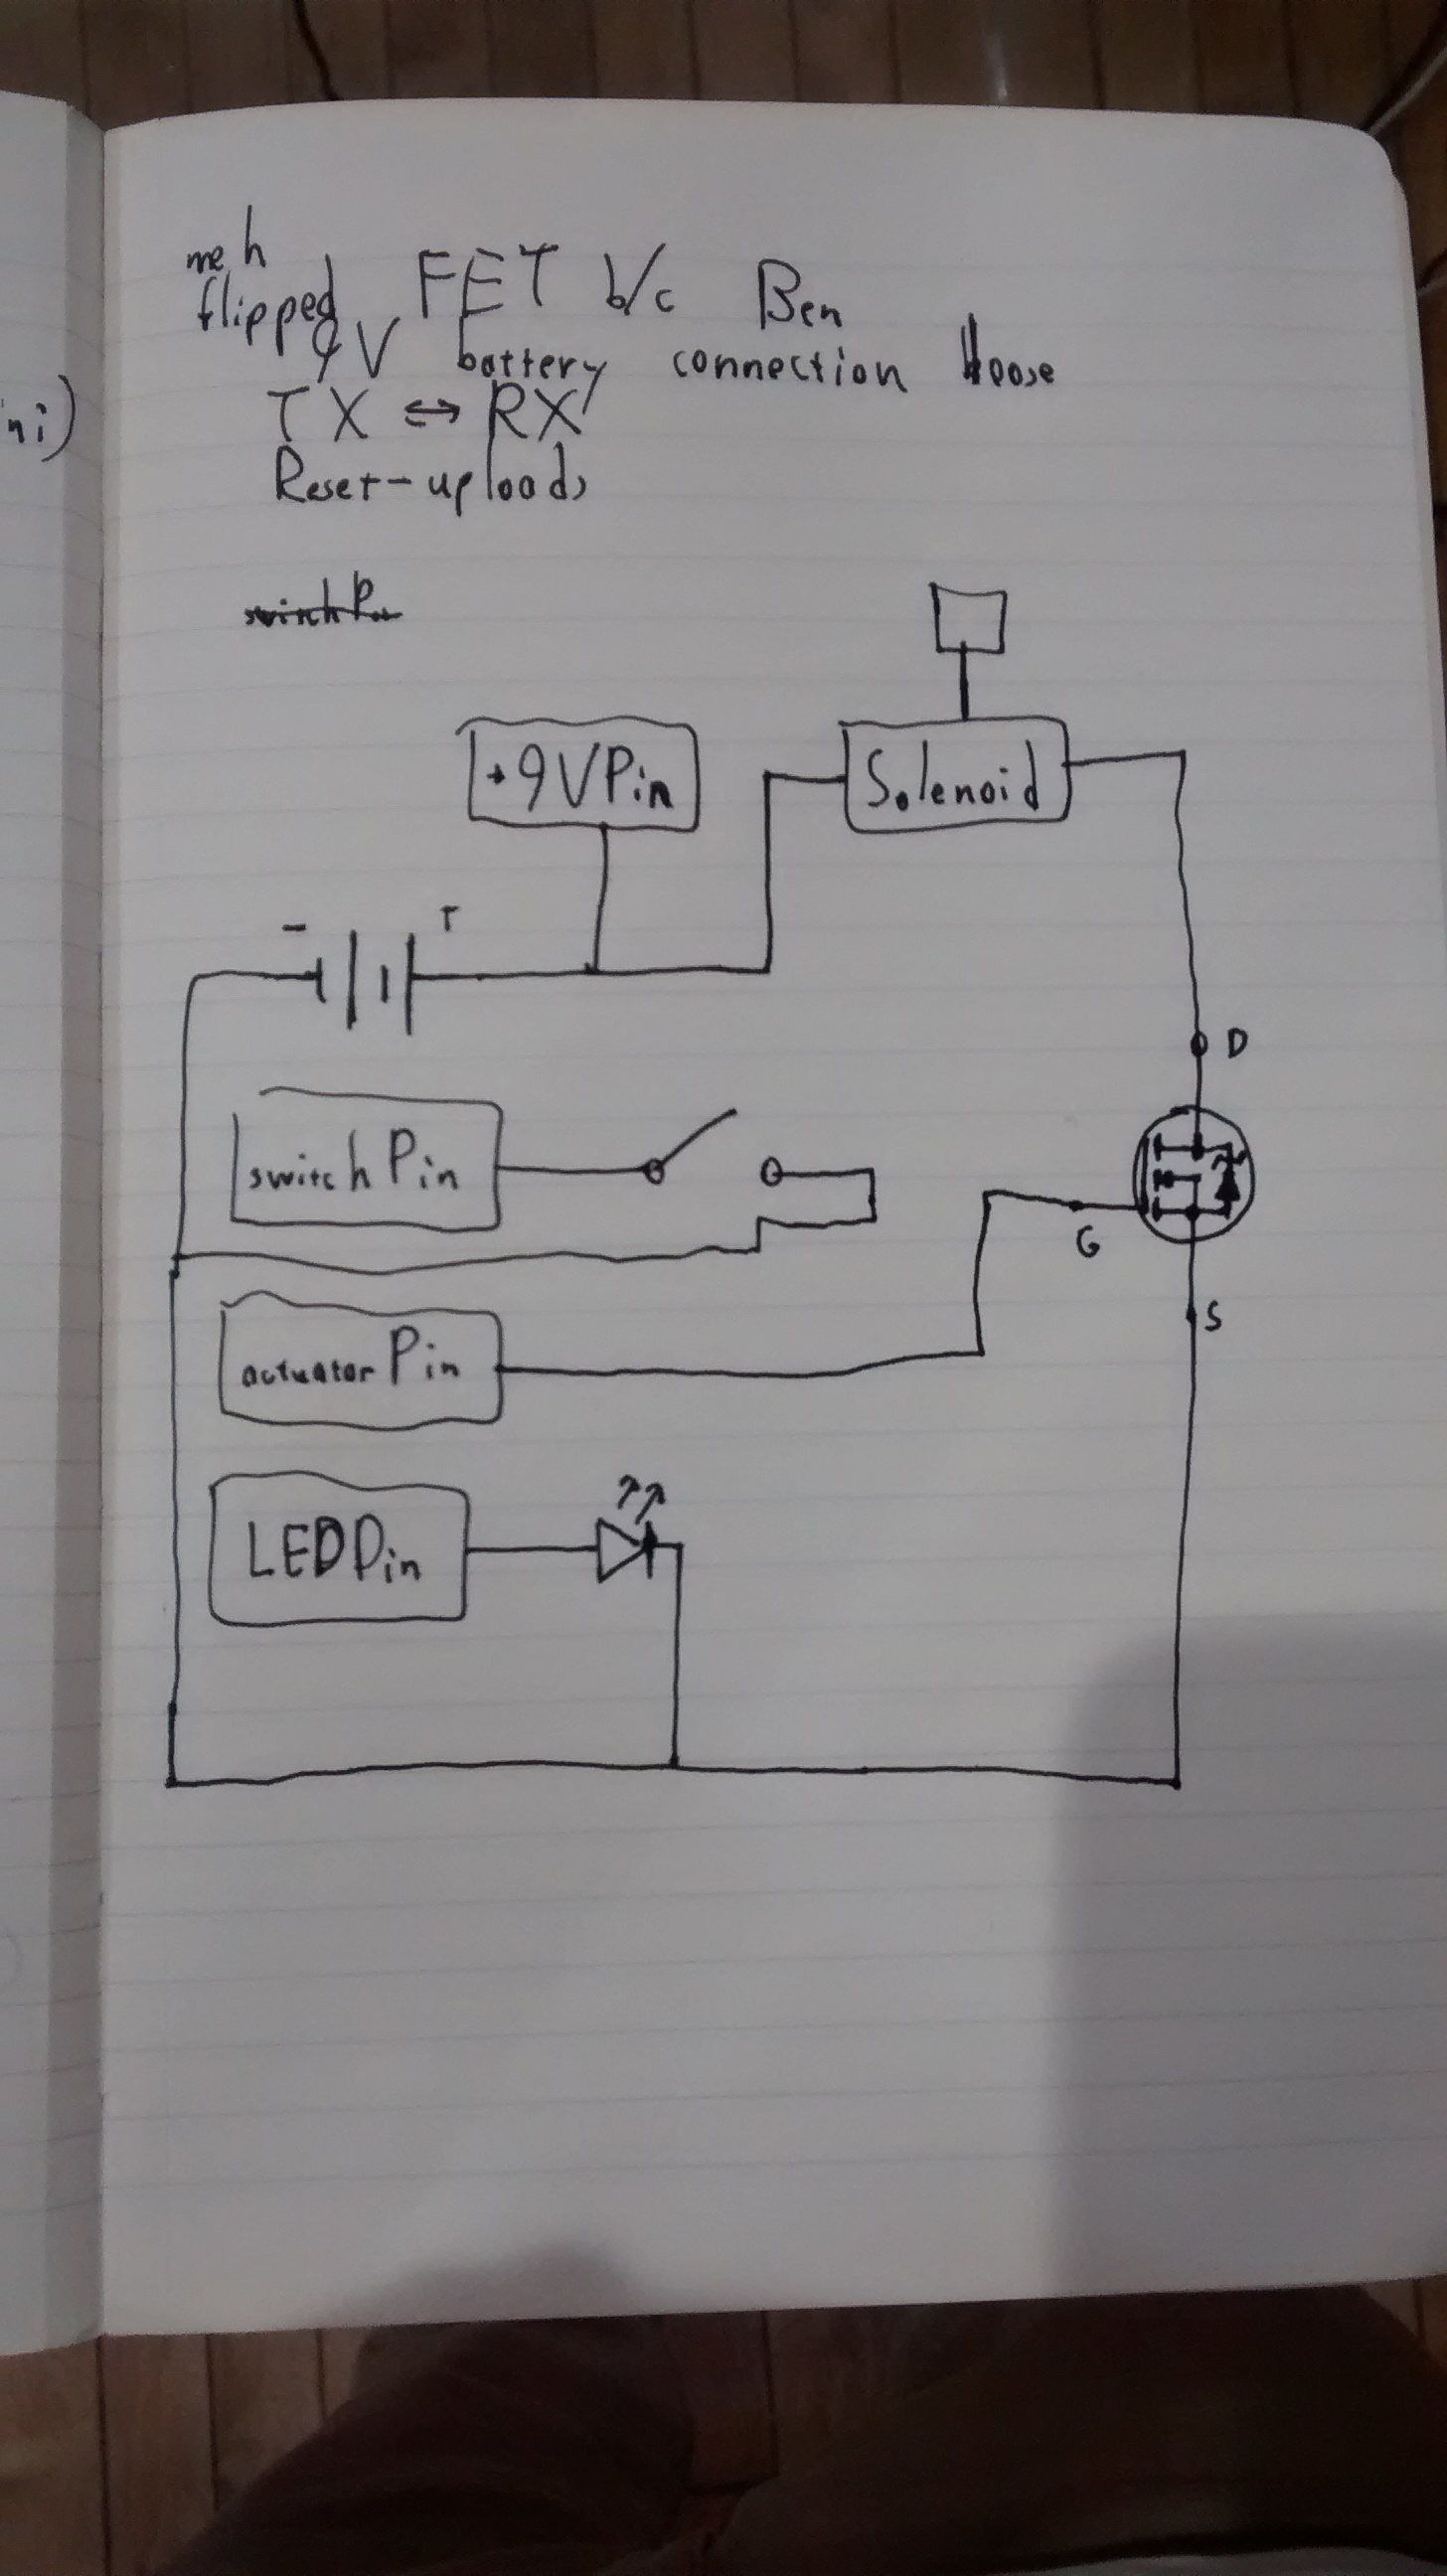 meh
flipped FET b/c Ben
9V battery connection loose
TX ⇔ RX
ni)
Reset-uploads
switchPin
+9VPin
Solenoid
- +
D
switchPin
G
S
actuatorPin
LEDPin